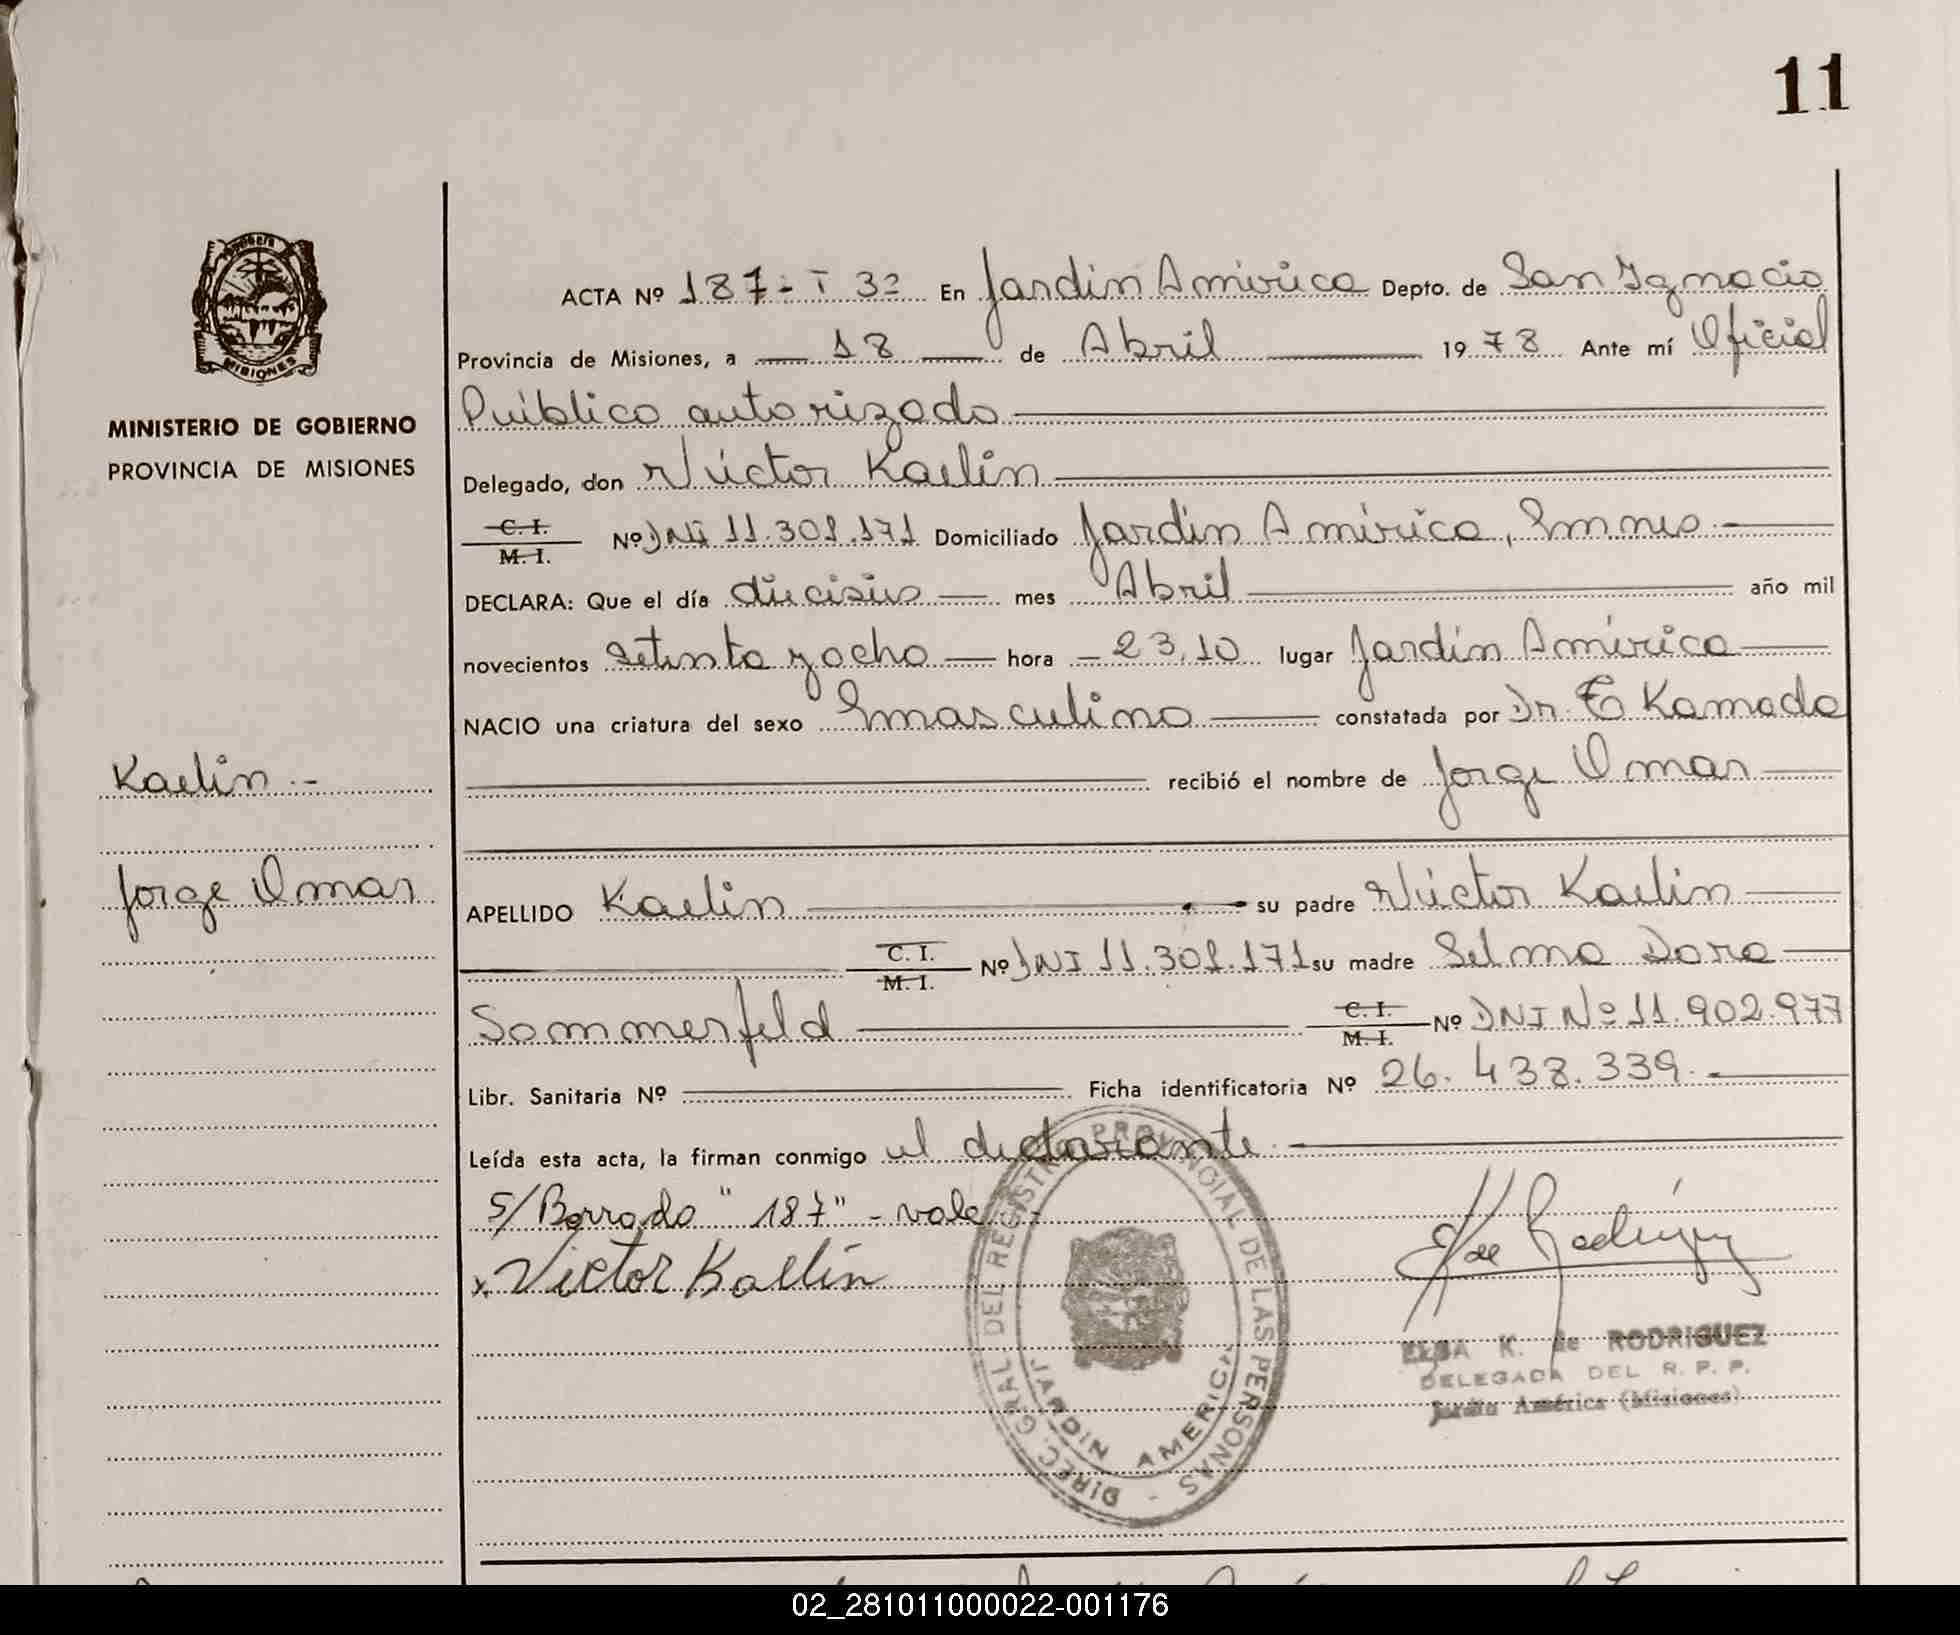 11
ACTA Nº 187 - T 3º En Jardín América Depto. de San Ignacio
Provincia de Misiones, a 18 de Abril 1978 Ante mí Oficial
Público autorizado
MINISTERIO DE GOBIERNO
PROVINCIA DE MISIONES
Delegado, don Víctor Kaelin
C.I. M.I. Nº DNI 11.301.171 Domiciliado Jardín América, Mnes.
DECLARA: Que el día dieciséis mes Abril año mil
novecientos setenta y ocho hora 23,10 lugar Jardín América
NACIO una criatura del sexo masculino constatada por Dr. E Kamada
recibió el nombre de Jorge Omar
Kaelin.-
Jorge Omar
APELLIDO Kaelin su padre Víctor Kaelin
C.I. M.I. Nº DNI 11.301.171 su madre Selma Dora
Sommerfeld C.I. M.I. Nº DNI Nº 11.902.977
Libr. Sanitaria Nº Ficha identificatoria Nº 26.438.339.-
Leída esta acta, la firman conmigo el declarante.
S/Borrado "187" - vale -
x Victor Kaelin
E K de Rodriguez
ELSA K. de RODRIGUEZ
DELEGADA DEL R. P. P.
Jardín América (Misiones)
DIREC. GRAL DEL REGISTRO PROVINCIAL DE LAS PERSONAS -
JARDIN AMERICA
MISIONES
02_281011000022-001176